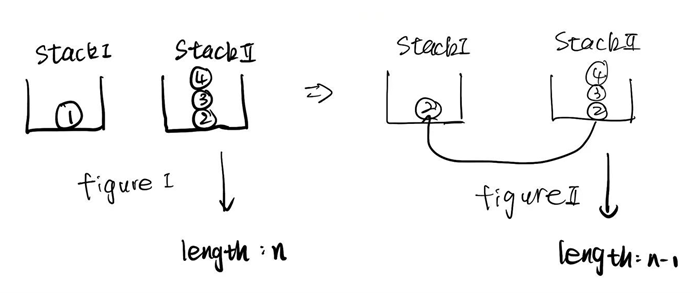 Stack I
Stack II
④
③
②
①
figure I
length: n
⇒
Stack I
Stack II
④
③
②
②
figure II
length: n-1